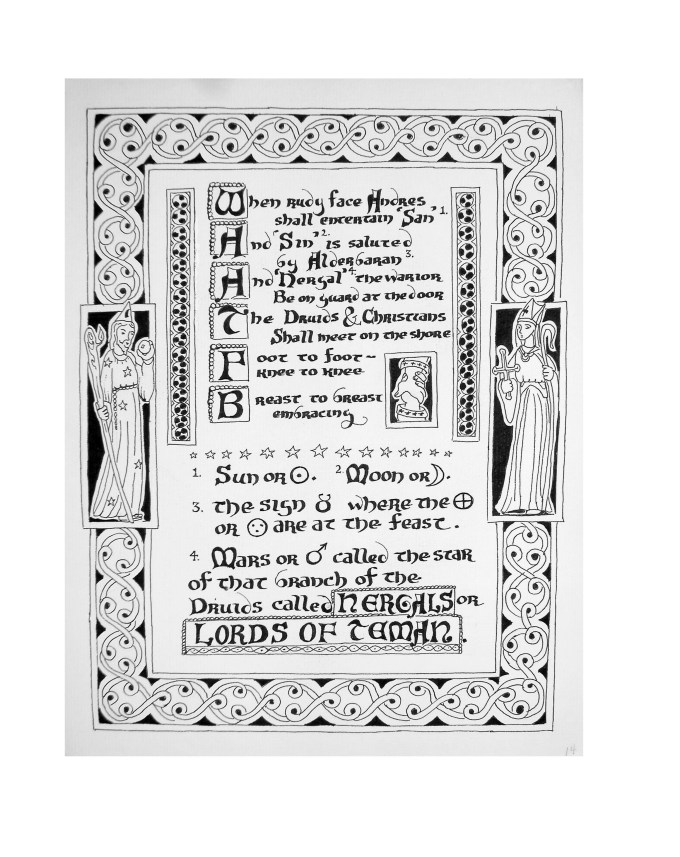 When rudy face Andres
shall entertain "San" 1.
And "Sin" 2. is saluted
by Alderbaran 3.
And "Nergal" 4. the warior
Be on guard at the door
The Druids & Christians
Shall meet on the shore
Foot to foot -
knee to knee
Breast to breast
embracing
1. Sun or ☉. 2 Moon or ☽.
3. the sign ♉ where the ⊕
or ☉ are at the feast.
4. Mars or ♂ called the star
of that branch of the
Druids called NERGALS or
LORDS OF TEMAN.
14